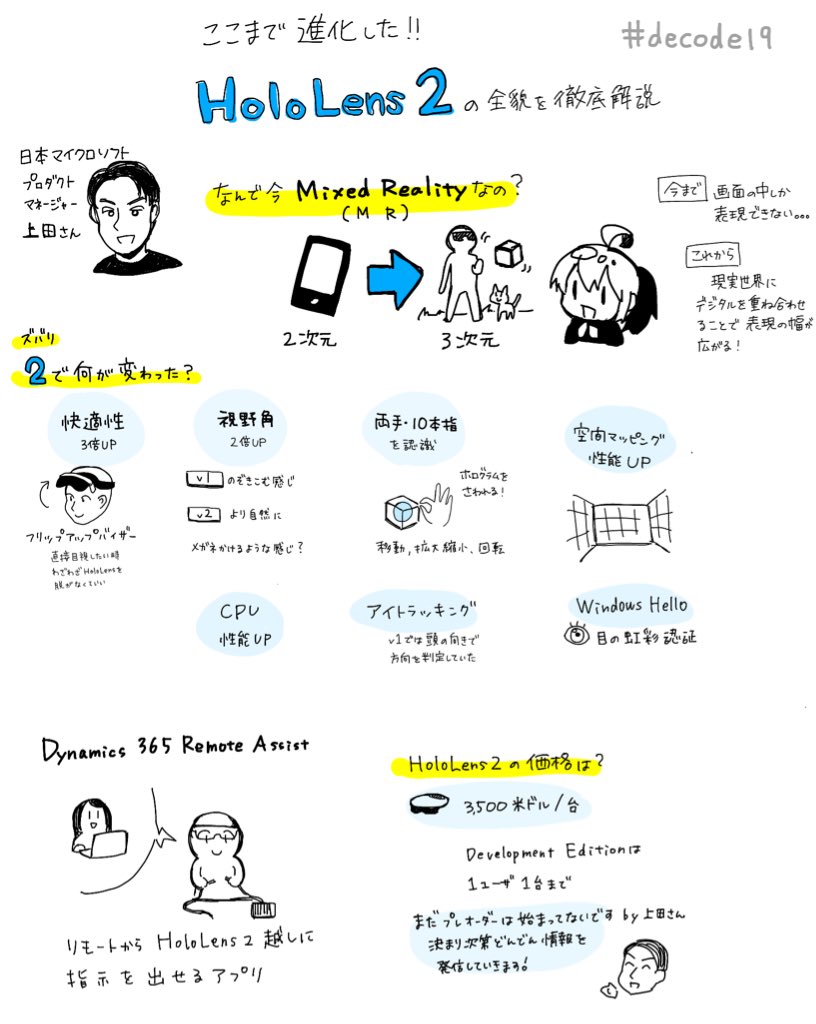 ここまで進化した!!
#decode19
HoloLens 2 の全貌を徹底解説
日本マイクロソフト
プロダクト
マネージャー
上田さん
なんで今 Mixed Reality なの?
(MR)
2次元
3次元
今まで 画面の中しか
表現できない...
これから
現実世界に
デジタルを重ね合わせ
ることで 表現の幅が
広がる!
ズバリ
2で何が変わった?
快適性
3倍UP
フリップアップバイザー
直接目視したい時
わざわざHoloLensを
脱がなくていい
視野角
2倍UP
v1 のぞきこむ感じ
v2 より自然に
メガネかけるような感じ?
両手・10本指
を認識
ホログラムを
さわれる!
移動,拡大縮小、回転
空間マッピング
性能UP
CPU
性能UP
アイトラッキング
v1では頭の向きで
方向を判定していた
Windows Hello
目の虹彩認証
Dynamics 365 Remote Assist
リモートから HoloLens2 越しに
指示を出せるアプリ
HoloLens2の価格は?
3,500米ドル/台
Development Editionは
1ユーザ1台まで
まだプレオーダーは始まってないです by上田さん
決まり次第どんどん情報を
発信していきます!